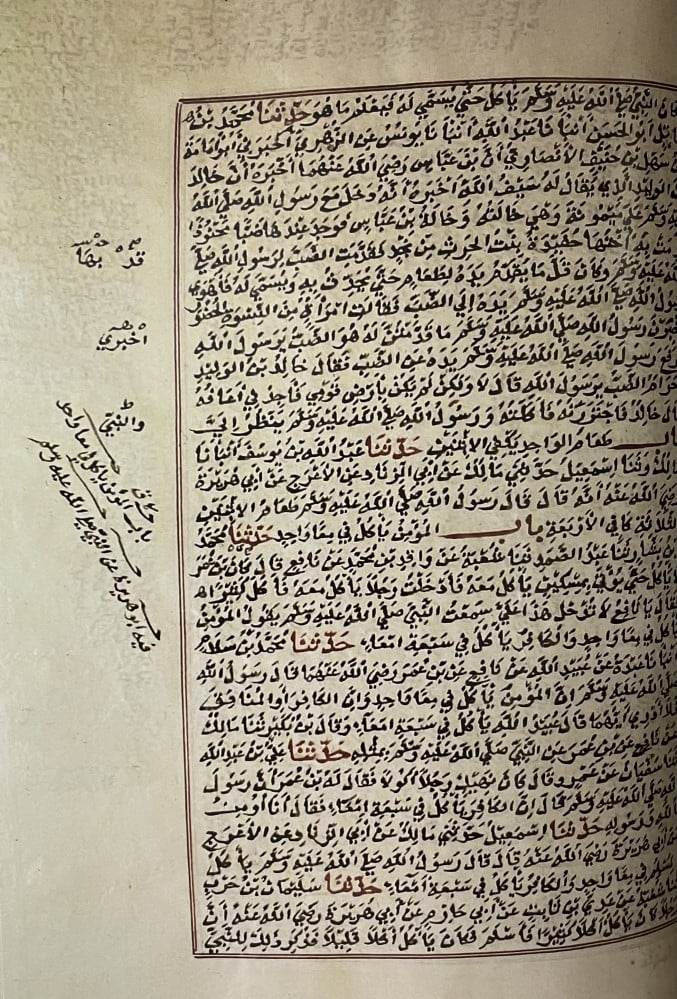 كان النبي صلى الله عليه وسلم يأكل حتى يسمى له فيعلم ما هو حدثنا محمد بن
مقاتل أبو الحسن أنبأ نا عبد الله أنبأ نا يونس عن الزهري أخبرني أبو أمامة
بن سهل بن حنيف الأنصاري أن بن عباس رضي الله عنهما أخبره أن خالد
بن الوليد الذي يقال له سيف الله أخبره أنه دخل مع رسول الله صلى الله
عليه وسلم على ميمونة وهي خالته وخالة بن عباس فوجد عندها ضبا محنوذا
قدمت به أختها حفيدة بنت الحرث من نجد فقدمت الضب لرسول الله صلى
الله عليه وسلم وكان قل ما يقدم يده لطعام حتى يحدث به ويسمى له فأهوى
رسول الله صلى الله عليه وسلم يده إلى الضب فقالت امرأة من النسوة الحضور
أخبرن رسول الله صلى الله عليه وسلم ما قدمتن له هو الضب يرسول الله
فرفع رسول الله صلى الله عليه وسلم يده عن الضب فقال خالد بن الوليد
أحرام الضب يرسول الله قال لا ولكن لم يكن بأرض قومي فأجدني أعافه
قال خالد فاجتررته فأكلته ورسول الله صلى الله عليه وسلم ينظر إلي
باب طعام الواحد يكفي الاثنين حدثنا عبد الله بن يوسف أنبأ نا
مالك وثنا إسمعيل حدثني مالك عن أبي الزناد عن الأعرج عن أبي هريرة
رضي الله عنه أنه قال قال رسول الله صلى الله عليه وسلم طعام الاثنين
كافي الثلاثة كافي الأربعة باب المؤمن يأكل في معا واحد حدثنا محمد
بن بشار ثنا عبد الصمد ثنا شعبة عن واقد بن محمد عن نافع قال كان بن عمر
لا يأكل حتى يؤتى بمسكين يأكل معه فأدخلت رجلا يأكل معه فأكل كثيرا
فقال يا نافع لا تدخل هذا علي سمعت النبي صلى الله عليه وسلم يقول المؤمن
يأكل في معا واحد والكافر يأكل في سبعة امعاء حدثنا محمد بن سلام
أنبأ نا عبدة عن عبيد الله عن نافع عن بن عمر رضي الله عنهما قال رسول الله
صلى الله عليه وسلم إن المؤمن يأكل في معا واحد وإن الكافر أو المنافق
فلا أدري أيهما قال عبيد الله يأكل في سبعة امعاء وقال بن بكير ثنا مالك
عن نافع عن بن عمر عن النبي صلى الله عليه وسلم بمثله حدثنا علي بن عبد الله
ثنا سفيان عن عمرو قال كان أبو نهيك رجلا أكولا فقال له بن عمر إن رسول
الله صلى الله عليه وسلم قال إن الكافر يأكل في سبعة امعاء فقال أنا أومن
بالله ورسوله حدثنا إسمعيل حدثني مالك عن أبي الزناد عن الأعرج
عن أبي هريرة رضي الله عنه قال قال رسول الله صلى الله عليه وسلم يأكل
المسلم في معا واحد والكافر يأكل في سبعة امعاء حدثنا سليمان بن حرب
ثنا شعبة عن عدي بن ثابت عن أبي حازم عن أبي هريرة رضي الله عنه أن
رجلا كان يأكل أكلا كثيرا فأسلم فكان يأكل أكلا قليلا فذكر ذلك للنبي
قد بها
أخبري
والنبي
باب المؤمن يأكل في معا واحد
فيه أبو هريرة عن النبي صلى الله عليه وسلم